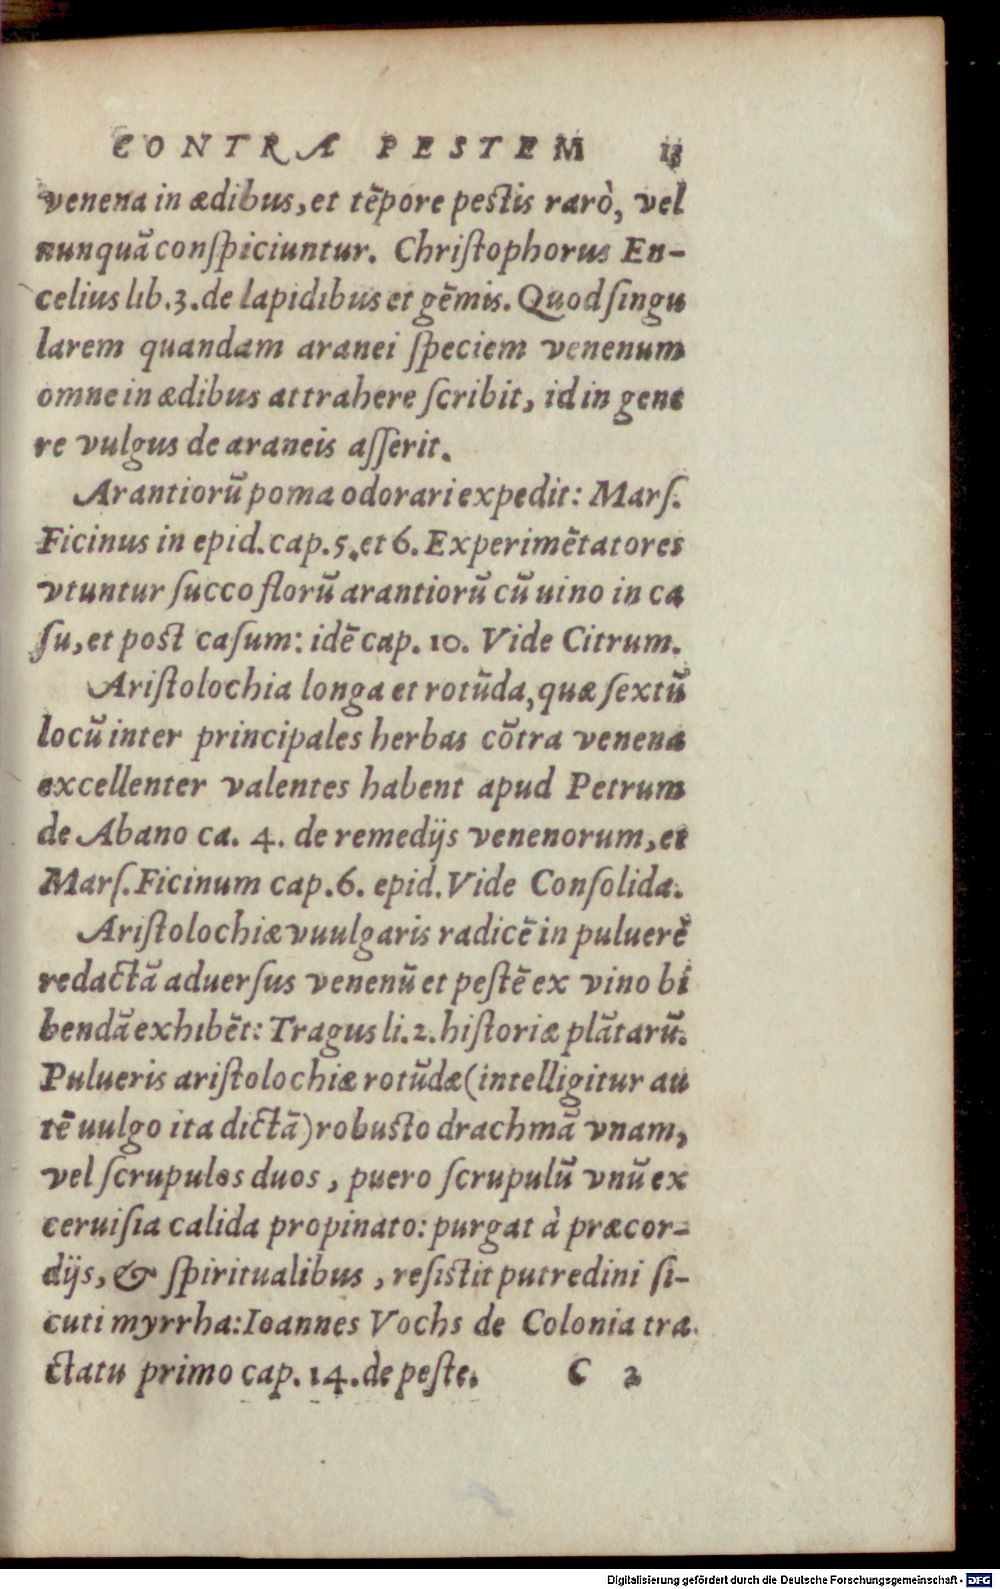 CONTRA PESTEM 13
venena in ædibus, et tẽpore pestis rarò, vel
nunquã conſpiciuntur. Chriſtophorus En-
celius lib. 3. de lapidibus et gẽmis. Quod ſingu
larem quandam aranei ſpeciem venenum
omne in ædibus attrahere ſcribit, id in gene
re vulgus de araneis aſſerit.
Arantiorũ poma odorari expedit: Marſ.
Ficinus in epid. cap. 5. et 6. Experimẽtatores
vtuntur ſucco florũ arantiorũ cũ uino in ca
ſu, et post caſum: idẽ cap. 10. Vide Citrum.
Ariſtolochia longa et rotũda, quæ ſextũ
locũ inter principales herbas cõtra venena
excellenter valentes habent apud Petrum
de Abano ca. 4. de remedijs venenorum, et
Marſ. Ficinum cap. 6. epid. Vide Conſolida.
Ariſtolochiæ vuulgaris radicẽ in puluerẽ
redactã aduerſus venenũ et peſtẽ ex vino bi
bendã exhibẽt: Tragus li. 2. hiſtoriæ plãtarũ.
Pulueris ariſtolochiæ rotũdæ (intelligitur au
tẽ uulgo ita dictã) robusto drachmã vnam,
vel ſcrupulos duos, puero ſcrupulũ vnũ ex
ceruiſia calida propinato: purgat à præcor-
dijs, & ſpiritualibus, reſistit putredini ſi-
cuti myrrha: Ioannes Vochs de Colonia tra
ctatu primo cap. 14. de peſte. C 2
Digitalisierung gefördert durch die Deutsche Forschungsgemeinschaft - DFG